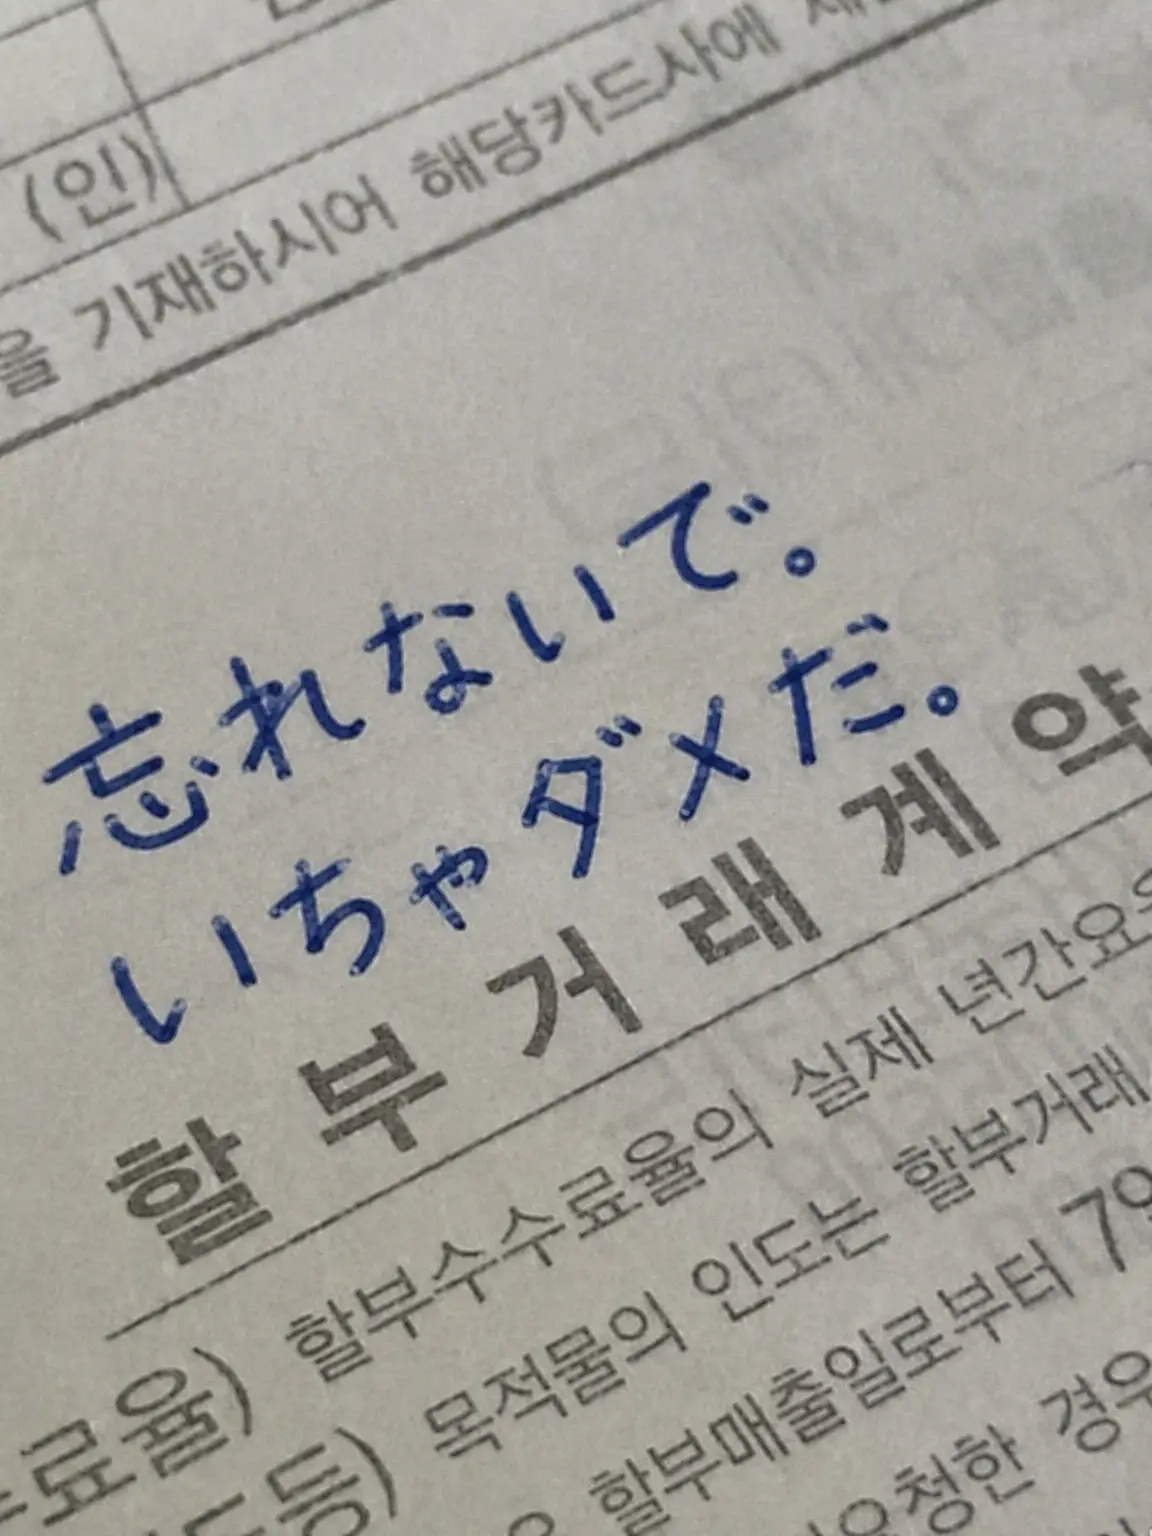 (인)
을 기재하시어 해당카드사에
忘れないで。
いちゃダメだ。
할부거래계약
율) 할부수수료율의 실제 년간요
료 등) 목적물의 인도는 할부거래
할부매출일로부터 7일
요청한 경우